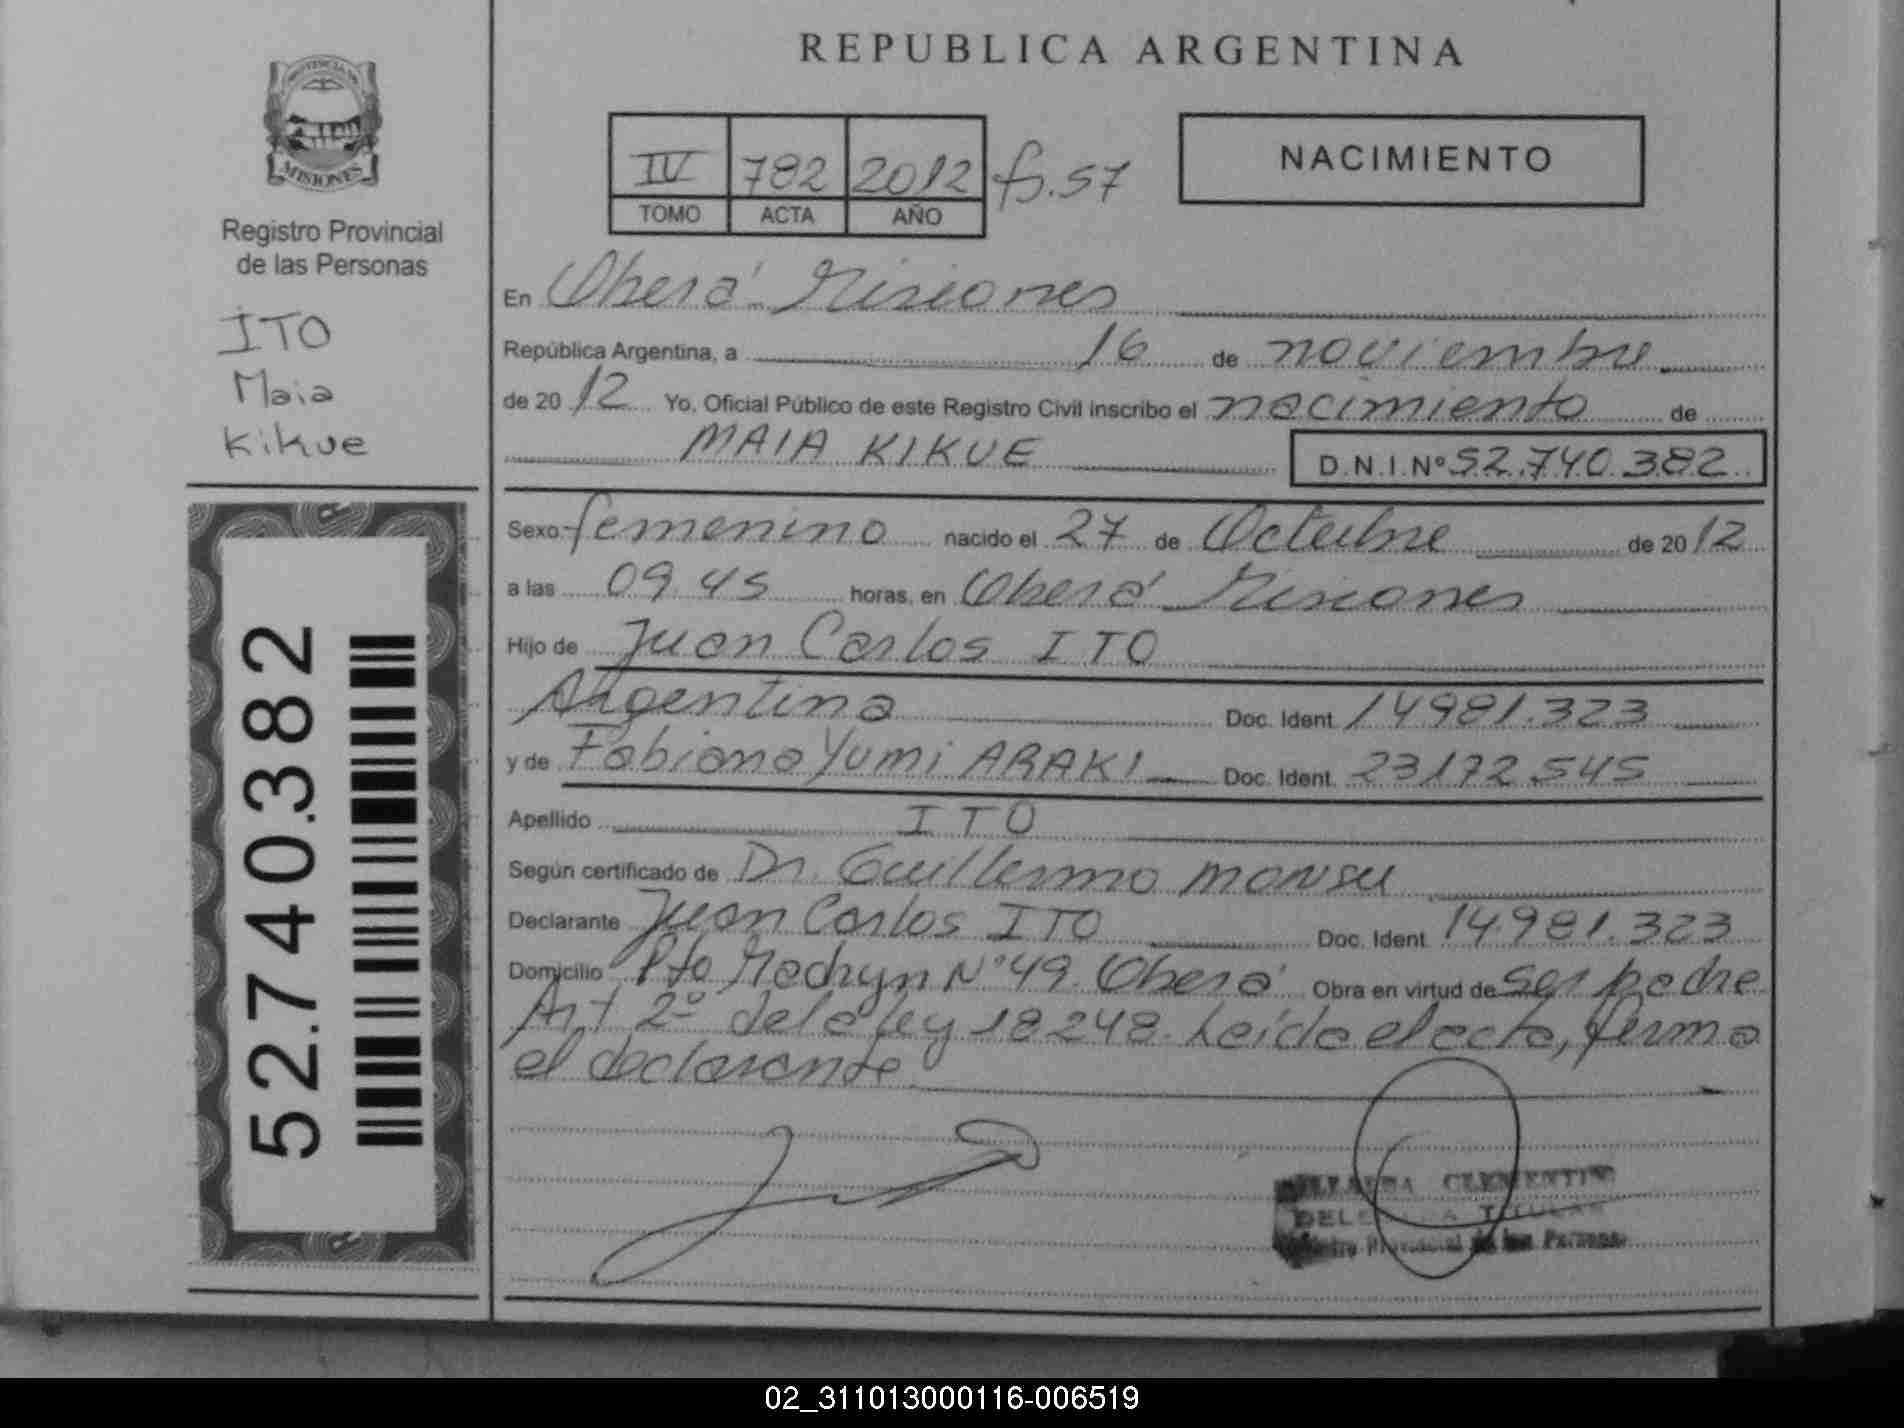 REPUBLICA ARGENTINA
PROVINCIA DE
MISIONES
Registro Provincial
de las Personas
ITO
Maia
Kikue
52.740.382
IV 782 2012 fs. 57
TOMO ACTA AÑO
NACIMIENTO
En Oberá Misiones
República Argentina, a 16 de noviembre
de 2012 Yo, Oficial Público de este Registro Civil inscribo el nacimiento de
MAIA KIKUE D.N.I.Nº 52.740.382
Sexo femenino nacido el 27 de Octubre de 2012
a las 09.45 horas, en Oberá Misiones
Hijo de Juan Carlos ITO
Argentina Doc. Ident. 14981.323
y de Fabiana Yumi ARAKI Doc. Ident. 23172.545
Apellido ITO
Según certificado de Dr. Guillermo
Declarante Juan Carlos ITO Doc. Ident. 14.981.323
Domicilio Pto Madryn Nº 49. Oberá Obra en virtud de ser padre
Art 2º de la ley 18248. Leída el acta, firma
el declarante
CLEMENTIN
TITULAR
Provincial de las Personas
02_311013000116-006519